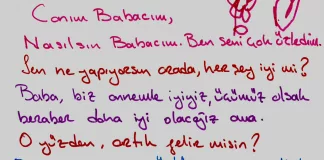 Canım Babacım,
Nasılsın Babacım. Ben seni çok özledim.
Sen ne yapıyorsun orada, her şey iyi mi?
Baba, biz annemle iyiyiz, üçümüz olsak
beraber daha iyi olacağız ama.
O yüzden, artık gelir misin?